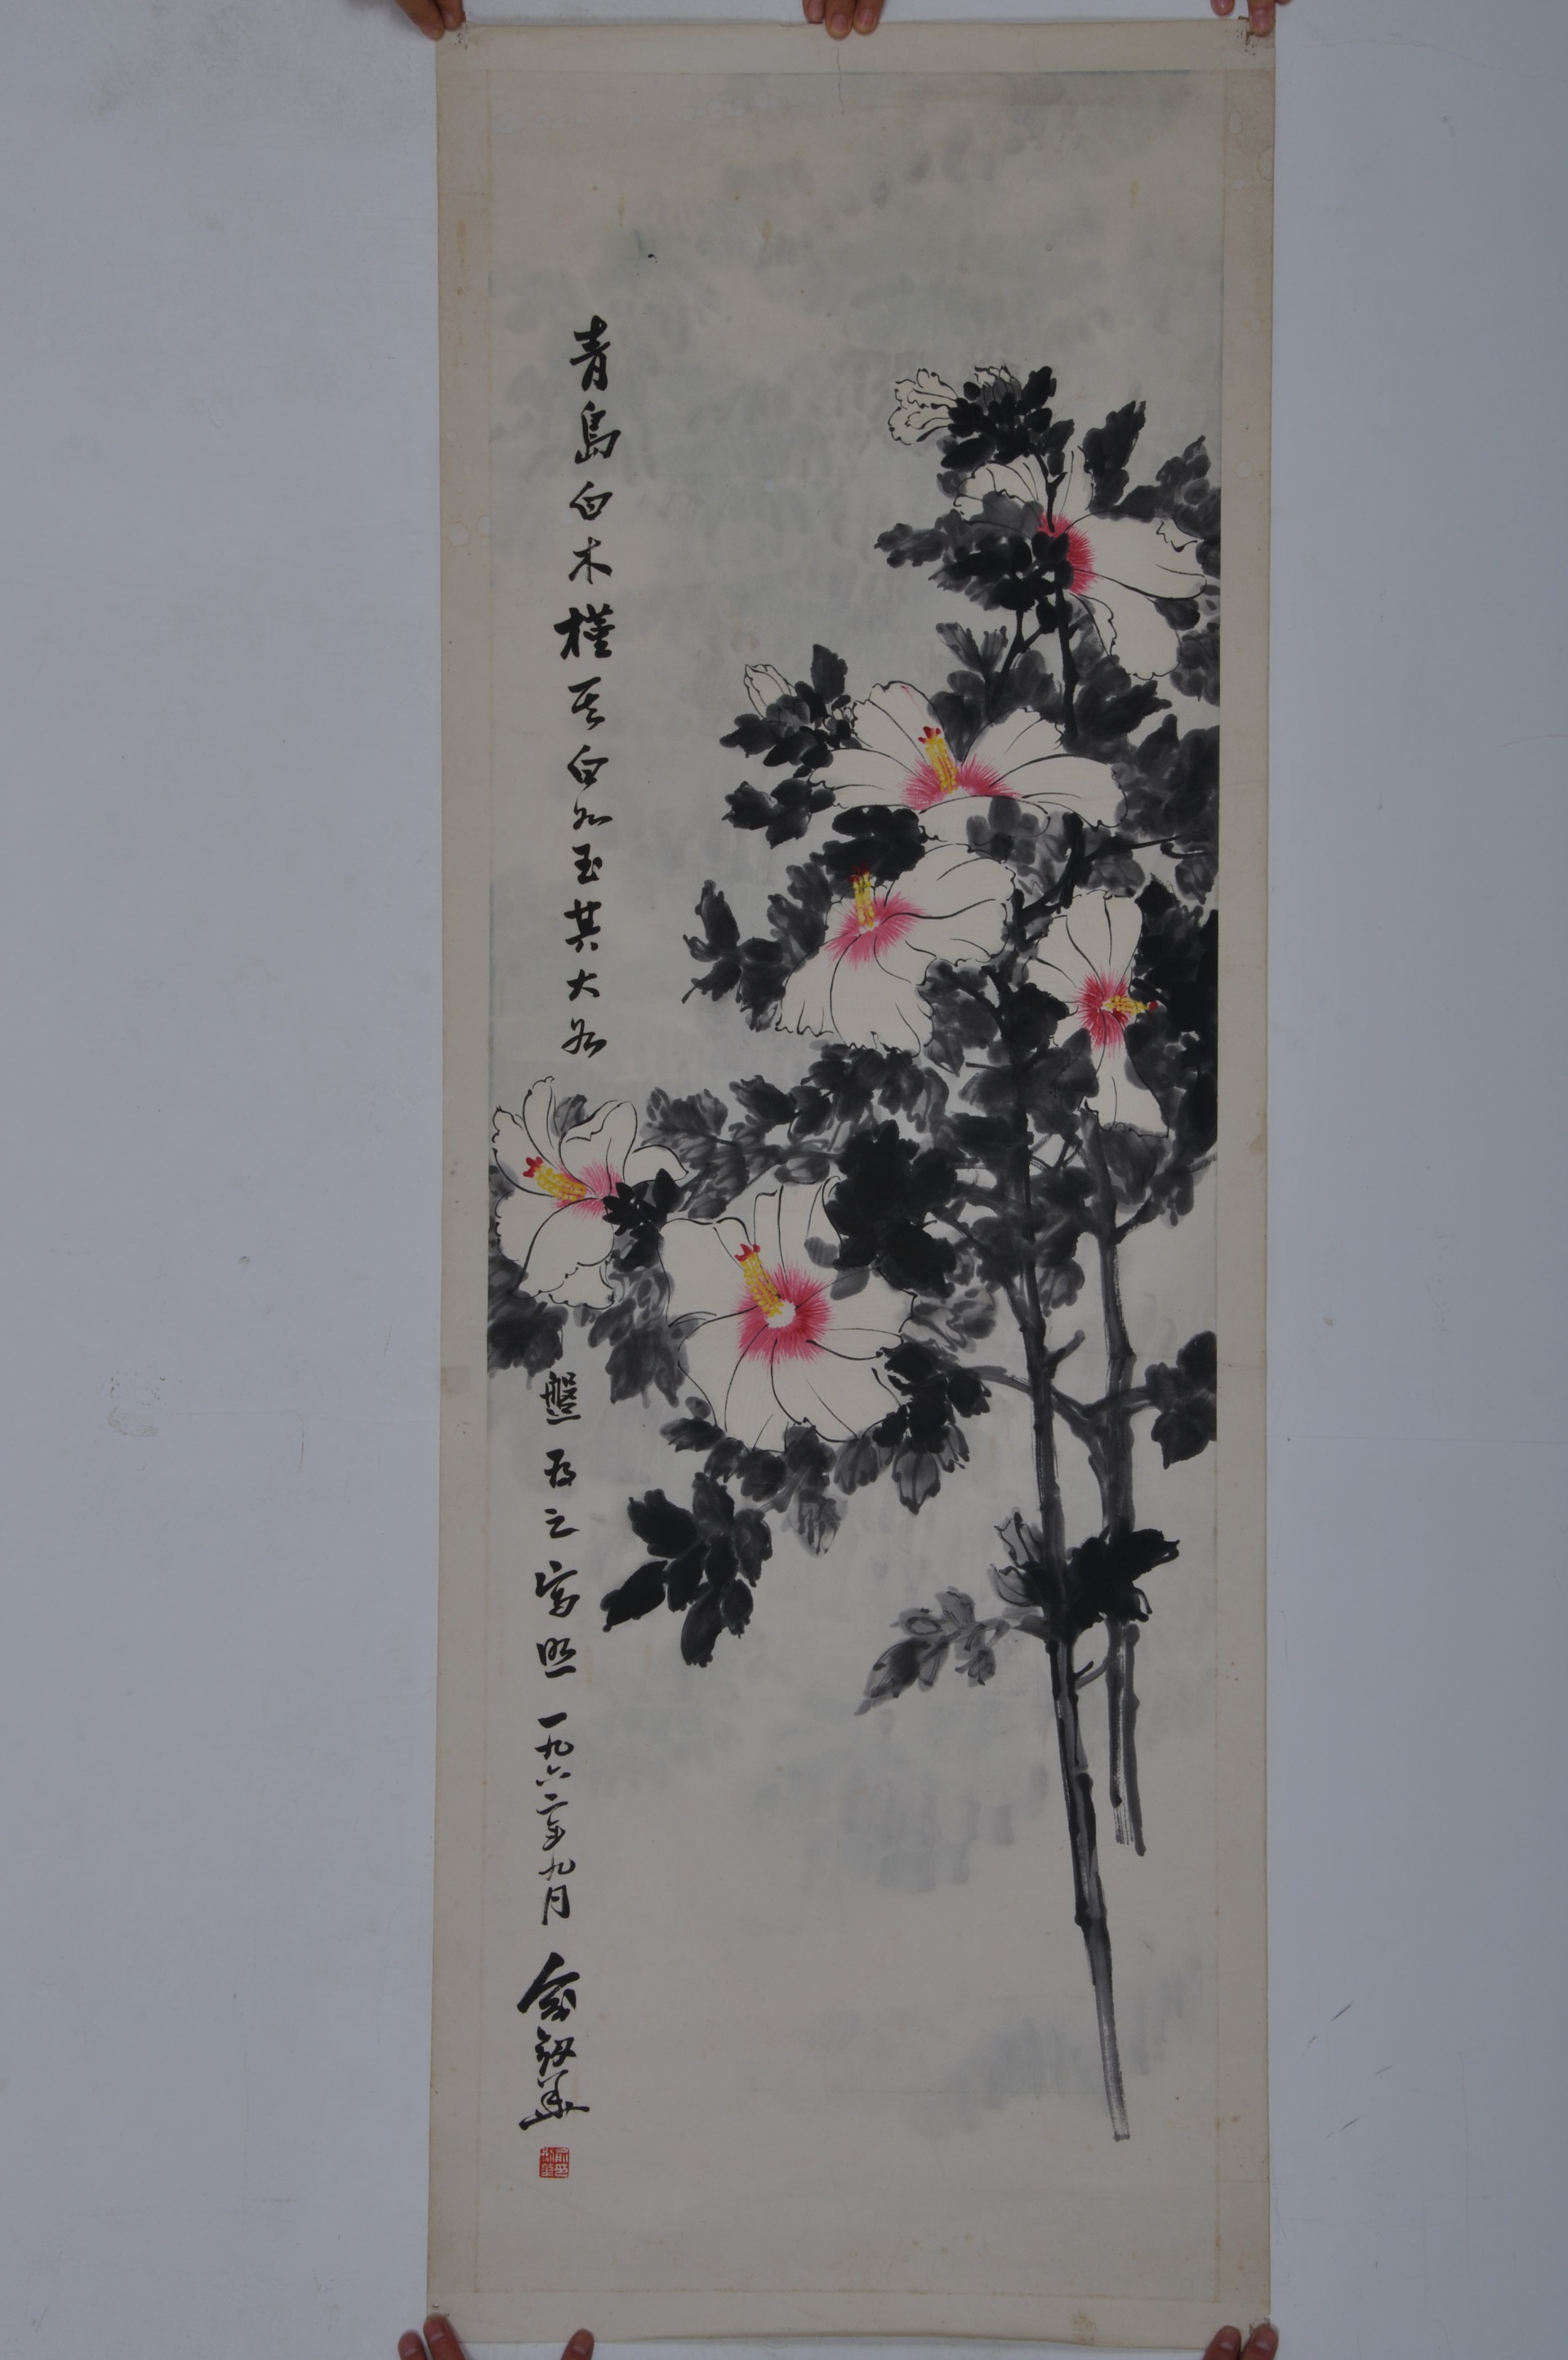 青島白木槿其白如玉其大如
盤為之寫照一九六二年九月俞劍華